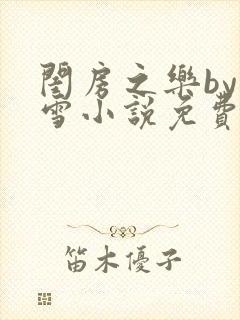 閨房之樂by
雪小說免費
笛木優子